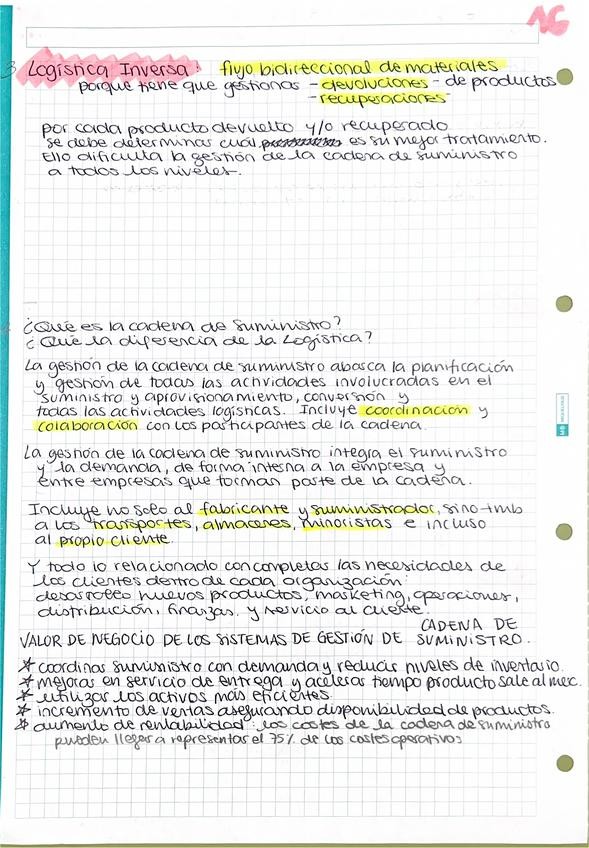 NG
3 Logística Inversa: flujo bidireccional de materiales
porque tiene que gestionar - devoluciones - de productos
- recuperaciones
por cada producto devuelto y/o recuperado
se debe determinar cuál es su mejor tratamiento.
Ello dificulta la gestión de la cadena de suministro
a todos los niveles.
¿Qué es la cadena de suministro?
¿Que la diferencia de la Logística?
La gestión de la cadena de suministro abarca la planificación
y gestión de todas las actividades involucradas en el
suministro y aprovisionamiento, conversión y
todas las actividades logísticas. Incluye coordinación y
colaboración con los participantes de la cadena.
La gestión de la cadena de suministro integra el suministro
y la demanda, de forma interna a la empresa y
entre empresas que forman parte de la cadena.
Incluye no solo al fabricante y suministrador, sino tmb
a los transportes, almacenes, minoristas e incluso
al propio cliente.
Y todo lo relacionado con completar las necesidades de
los clientes dentro de cada organización:
desarrollo nuevos productos, marketing, operaciones,
distribución, finanzas. y servicio al cliente.
VALOR DE NEGOCIO DE LOS SISTEMAS DE GESTIÓN DE CADENA DE SUMINISTRO.
* coordinar suministro con demanda y reducir niveles de inventario.
* mejorar en servicio de entrega y acelerar tiempo producto sale al mer.
* utilizar los activos más eficientes
* incremento de ventas asegurando disponibilidad de productos.
* aumento de rentabilidad: los costes de la cadena de suministro
pueden llegar a representar el 75% de los costes operativos